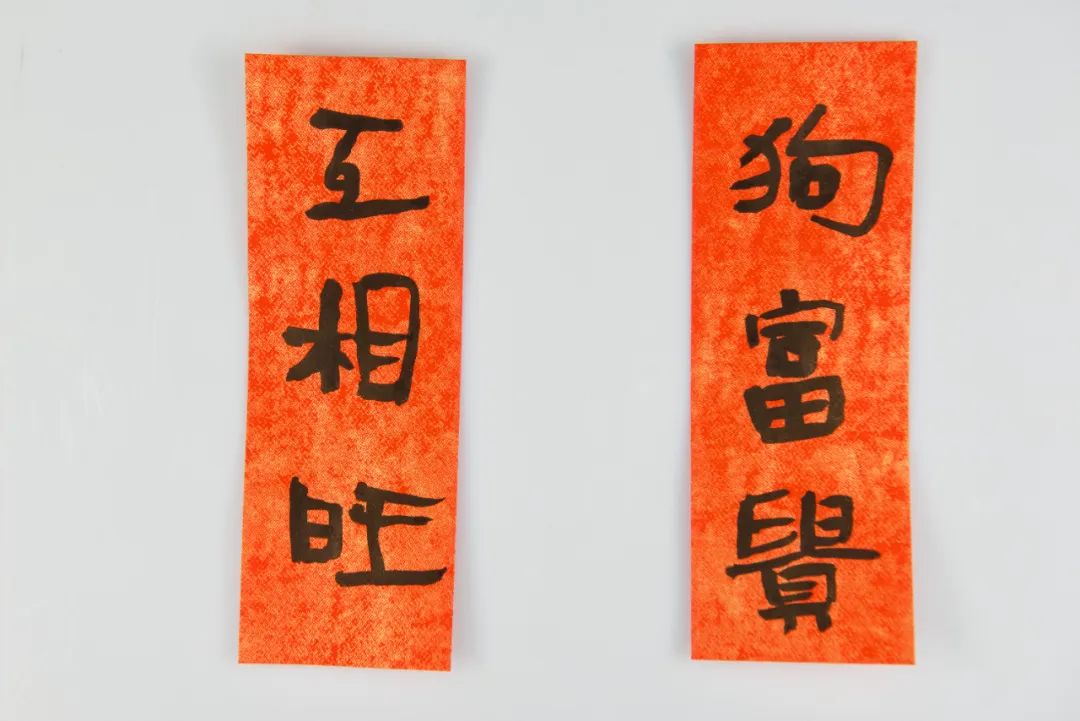 狗富貴
互相旺